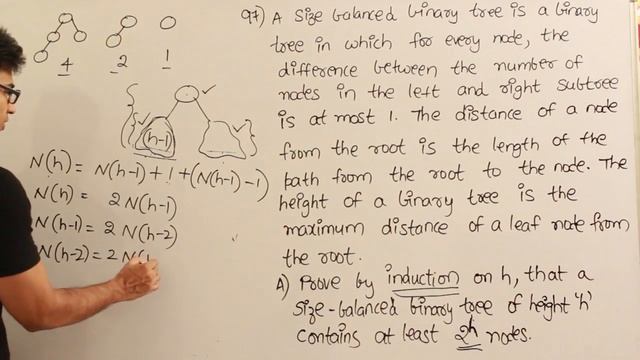 4 2 1
(h-1)
N(h) = N(h-1) + 1 + (N(h-1) - 1)
N(h) = 2 N(h-1)
N(h-1) = 2 N(h-2)
N(h-2) = 2 N(
97) A Size balanced binary tree is a binary
tree in which for every node, the
difference between the number of
nodes in the left and right subtree
is at most 1. The distance of a node
from the root is the length of the
path from the root to the node. The
height of a binary tree is the
maximum distance of a leaf node from
the root.
A) Prove by induction on h, that a
Size-balanced binary tree of height 'h'
contains at least 2^h nodes.